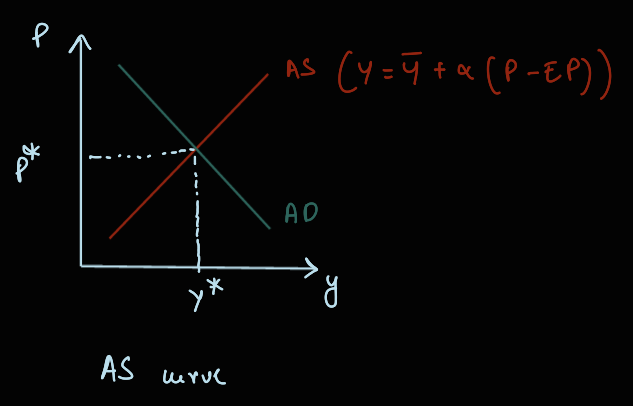 P
AS (Y = Y̅ + α (P - EP))
P*
AD
Y*
y
AS curve